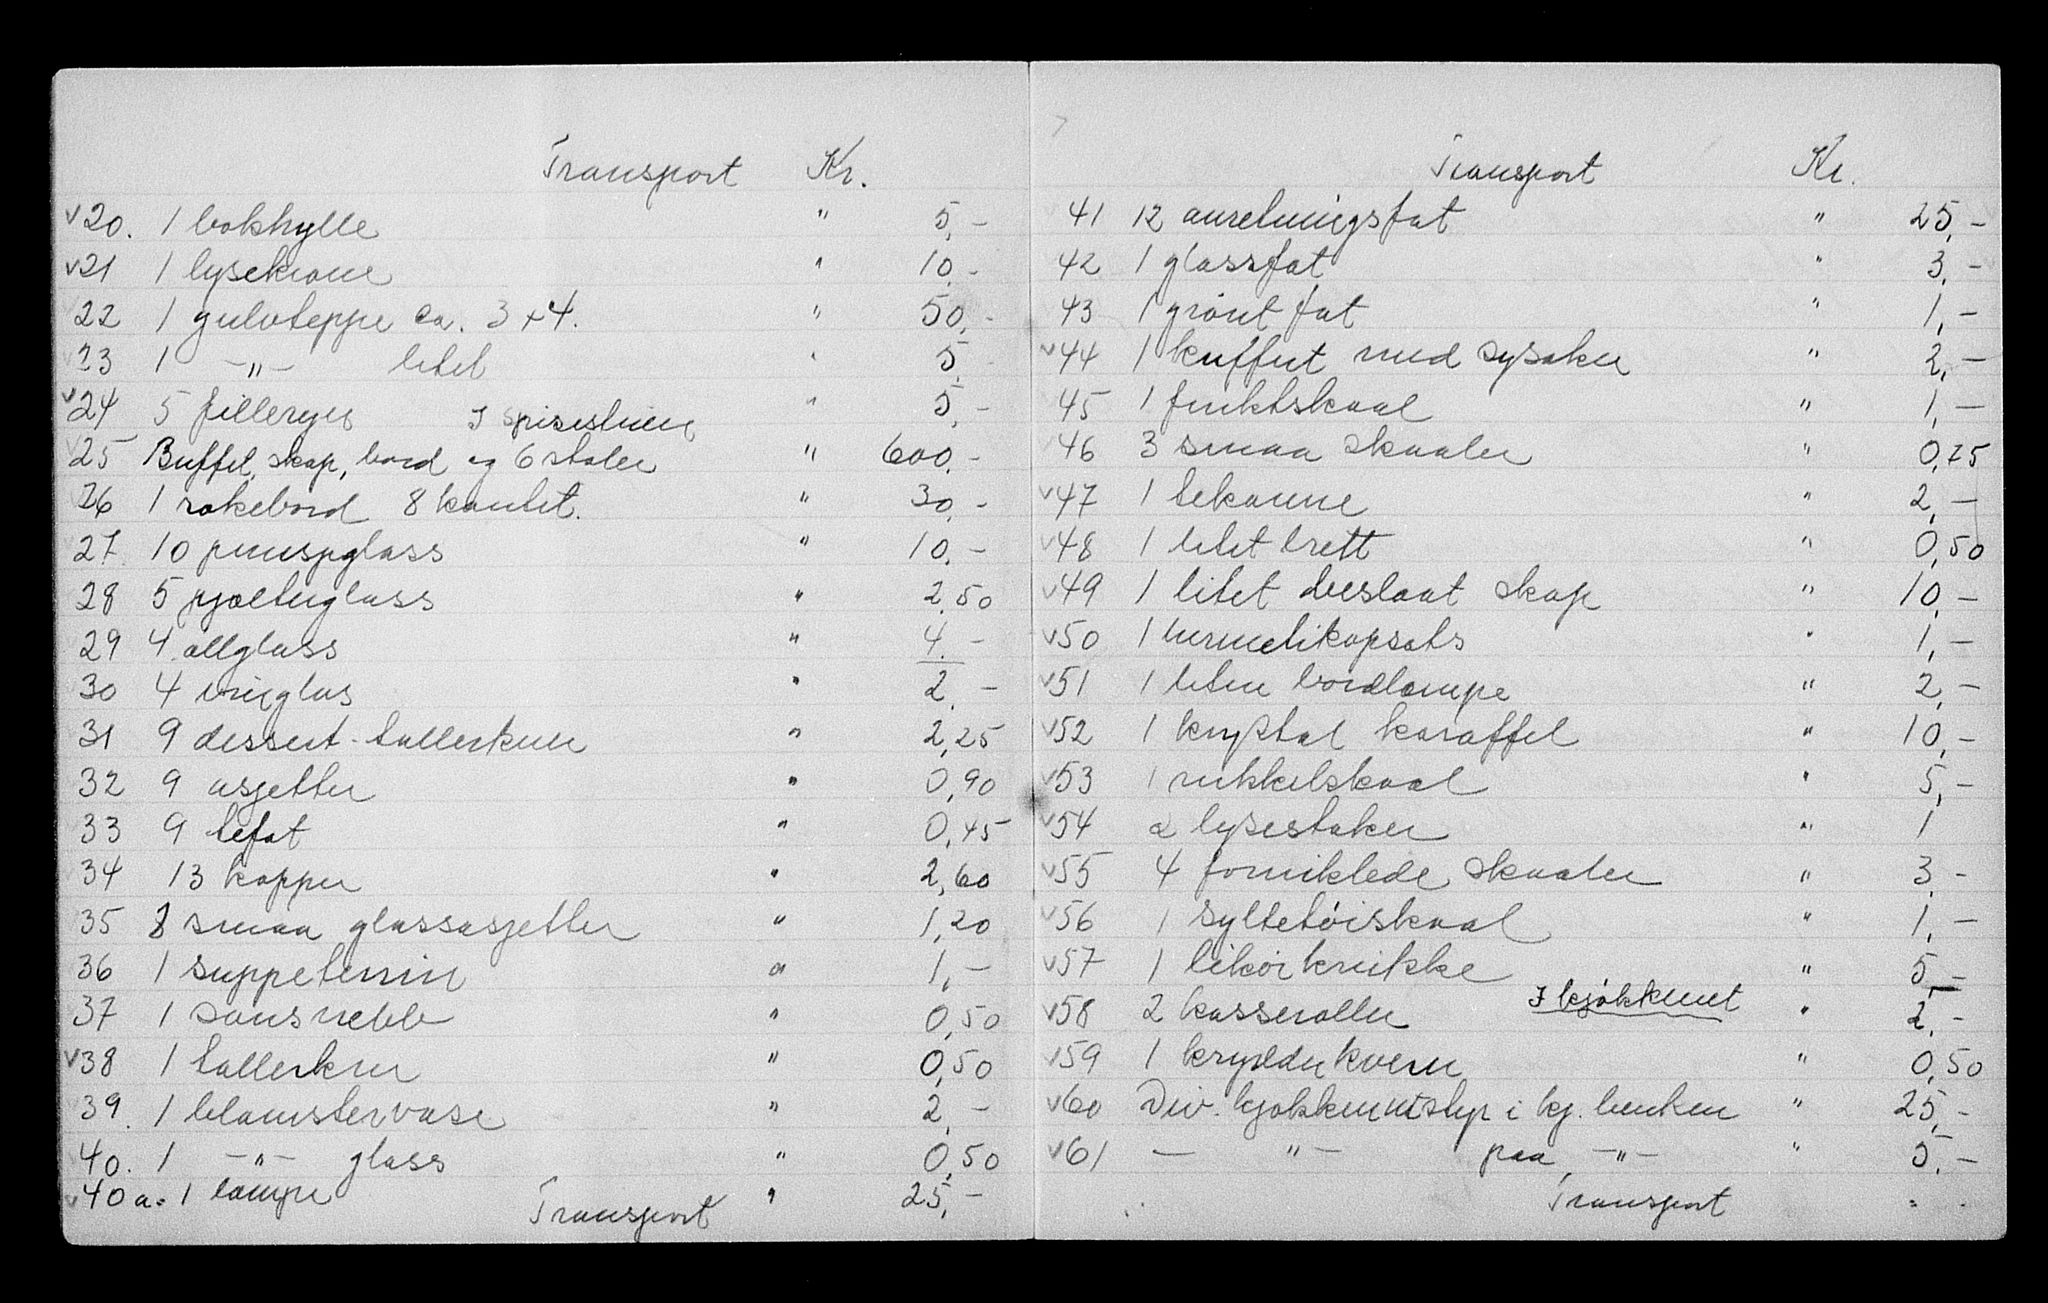 Transport Kr.
v20. 1 bokhylle " 5,-
v21 1 lysekrone " 10.-
v22 1 gulvteppe ca. 3 x 4. " 50,-
v23 1 -"- litet " 5,-
v24 5 filleryer " 5,-
I spisestuen
v25 Buffet, skap, bord og 6 stoler " 600,-
v26 1 røkebord 8 kantet. " 30,-
27. 10 punsjglass " 10,-
28 5 pjolterglass " 2,50
29 4 ølglass " 4.-
30 4 vinglas " 2,-
31 9 dessert-tallerkner " 2,25
32 9 asjetter " 0,90
33 9 tefat " 0,45
34 13 kopper " 2,60
35 8 smaa glassasjetter " 1,20
36 1 suppeterrin " 1,-
37 1 sausnebb " 0,50
v38 1 tallerken " 0,50
v39. 1 blomstervase " 2,-
v40. 1 -"- glass " 0,50
v40a. 1 lampe " 25,-
Transport
Transport Kr.
41 12 anretningsfat " 25,-
42 1 glassfat " 3,-
43 1 grønt fat " 1,-
v44 1 kuffert med sysaker " 2,-
45 1 fruktskaal " 1,-
46 3 smaa skaaler " 0,75
v47 1 tekanne " 2,-
v48 1 litet brett " 0,50
v49 1 litet skap " 10,-
v50 1 hermetikopsats " 1,-
v51 1 liten bordlampe " 2,-
v52 1 krystal karaffel " 10,-
v53 1 nikkelskaal " 5,-
v54 2 lysestaker " 1
v55 4 forniklede skaaler " 3,-
v56 1 syltetøiskaal " 1,-
v57 1 likørkrukke " 5,-
I kjøkkenet
v58 2 kasseroller " 2,-
v59 1 krydderkvern " 0,50
v60 Div. kjøkkenutstyr i kj. benken " 25,-
v61 - "- paa, -"- " 5.-
Transport